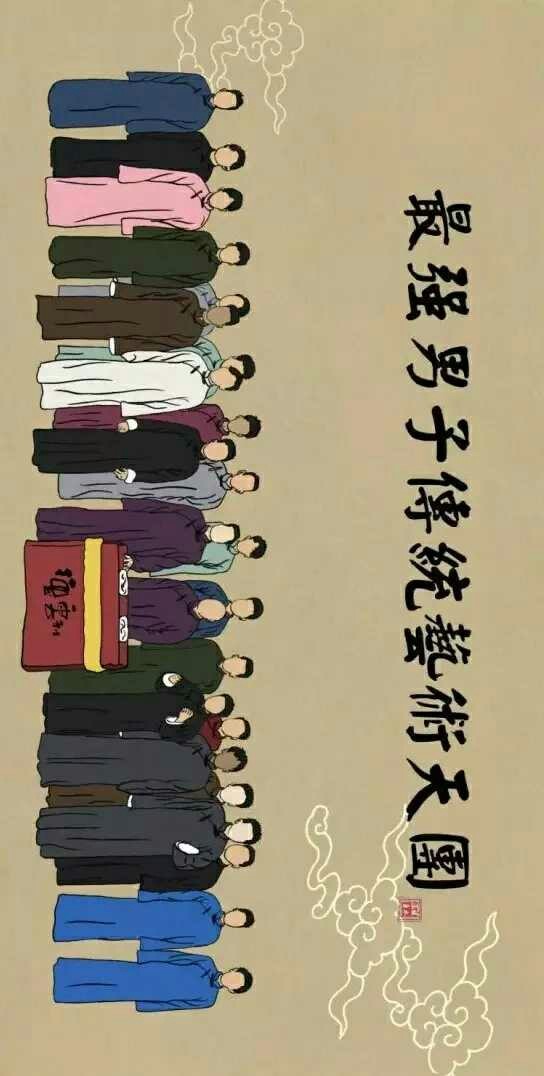 最强男子傳統藝術天團
德雲社